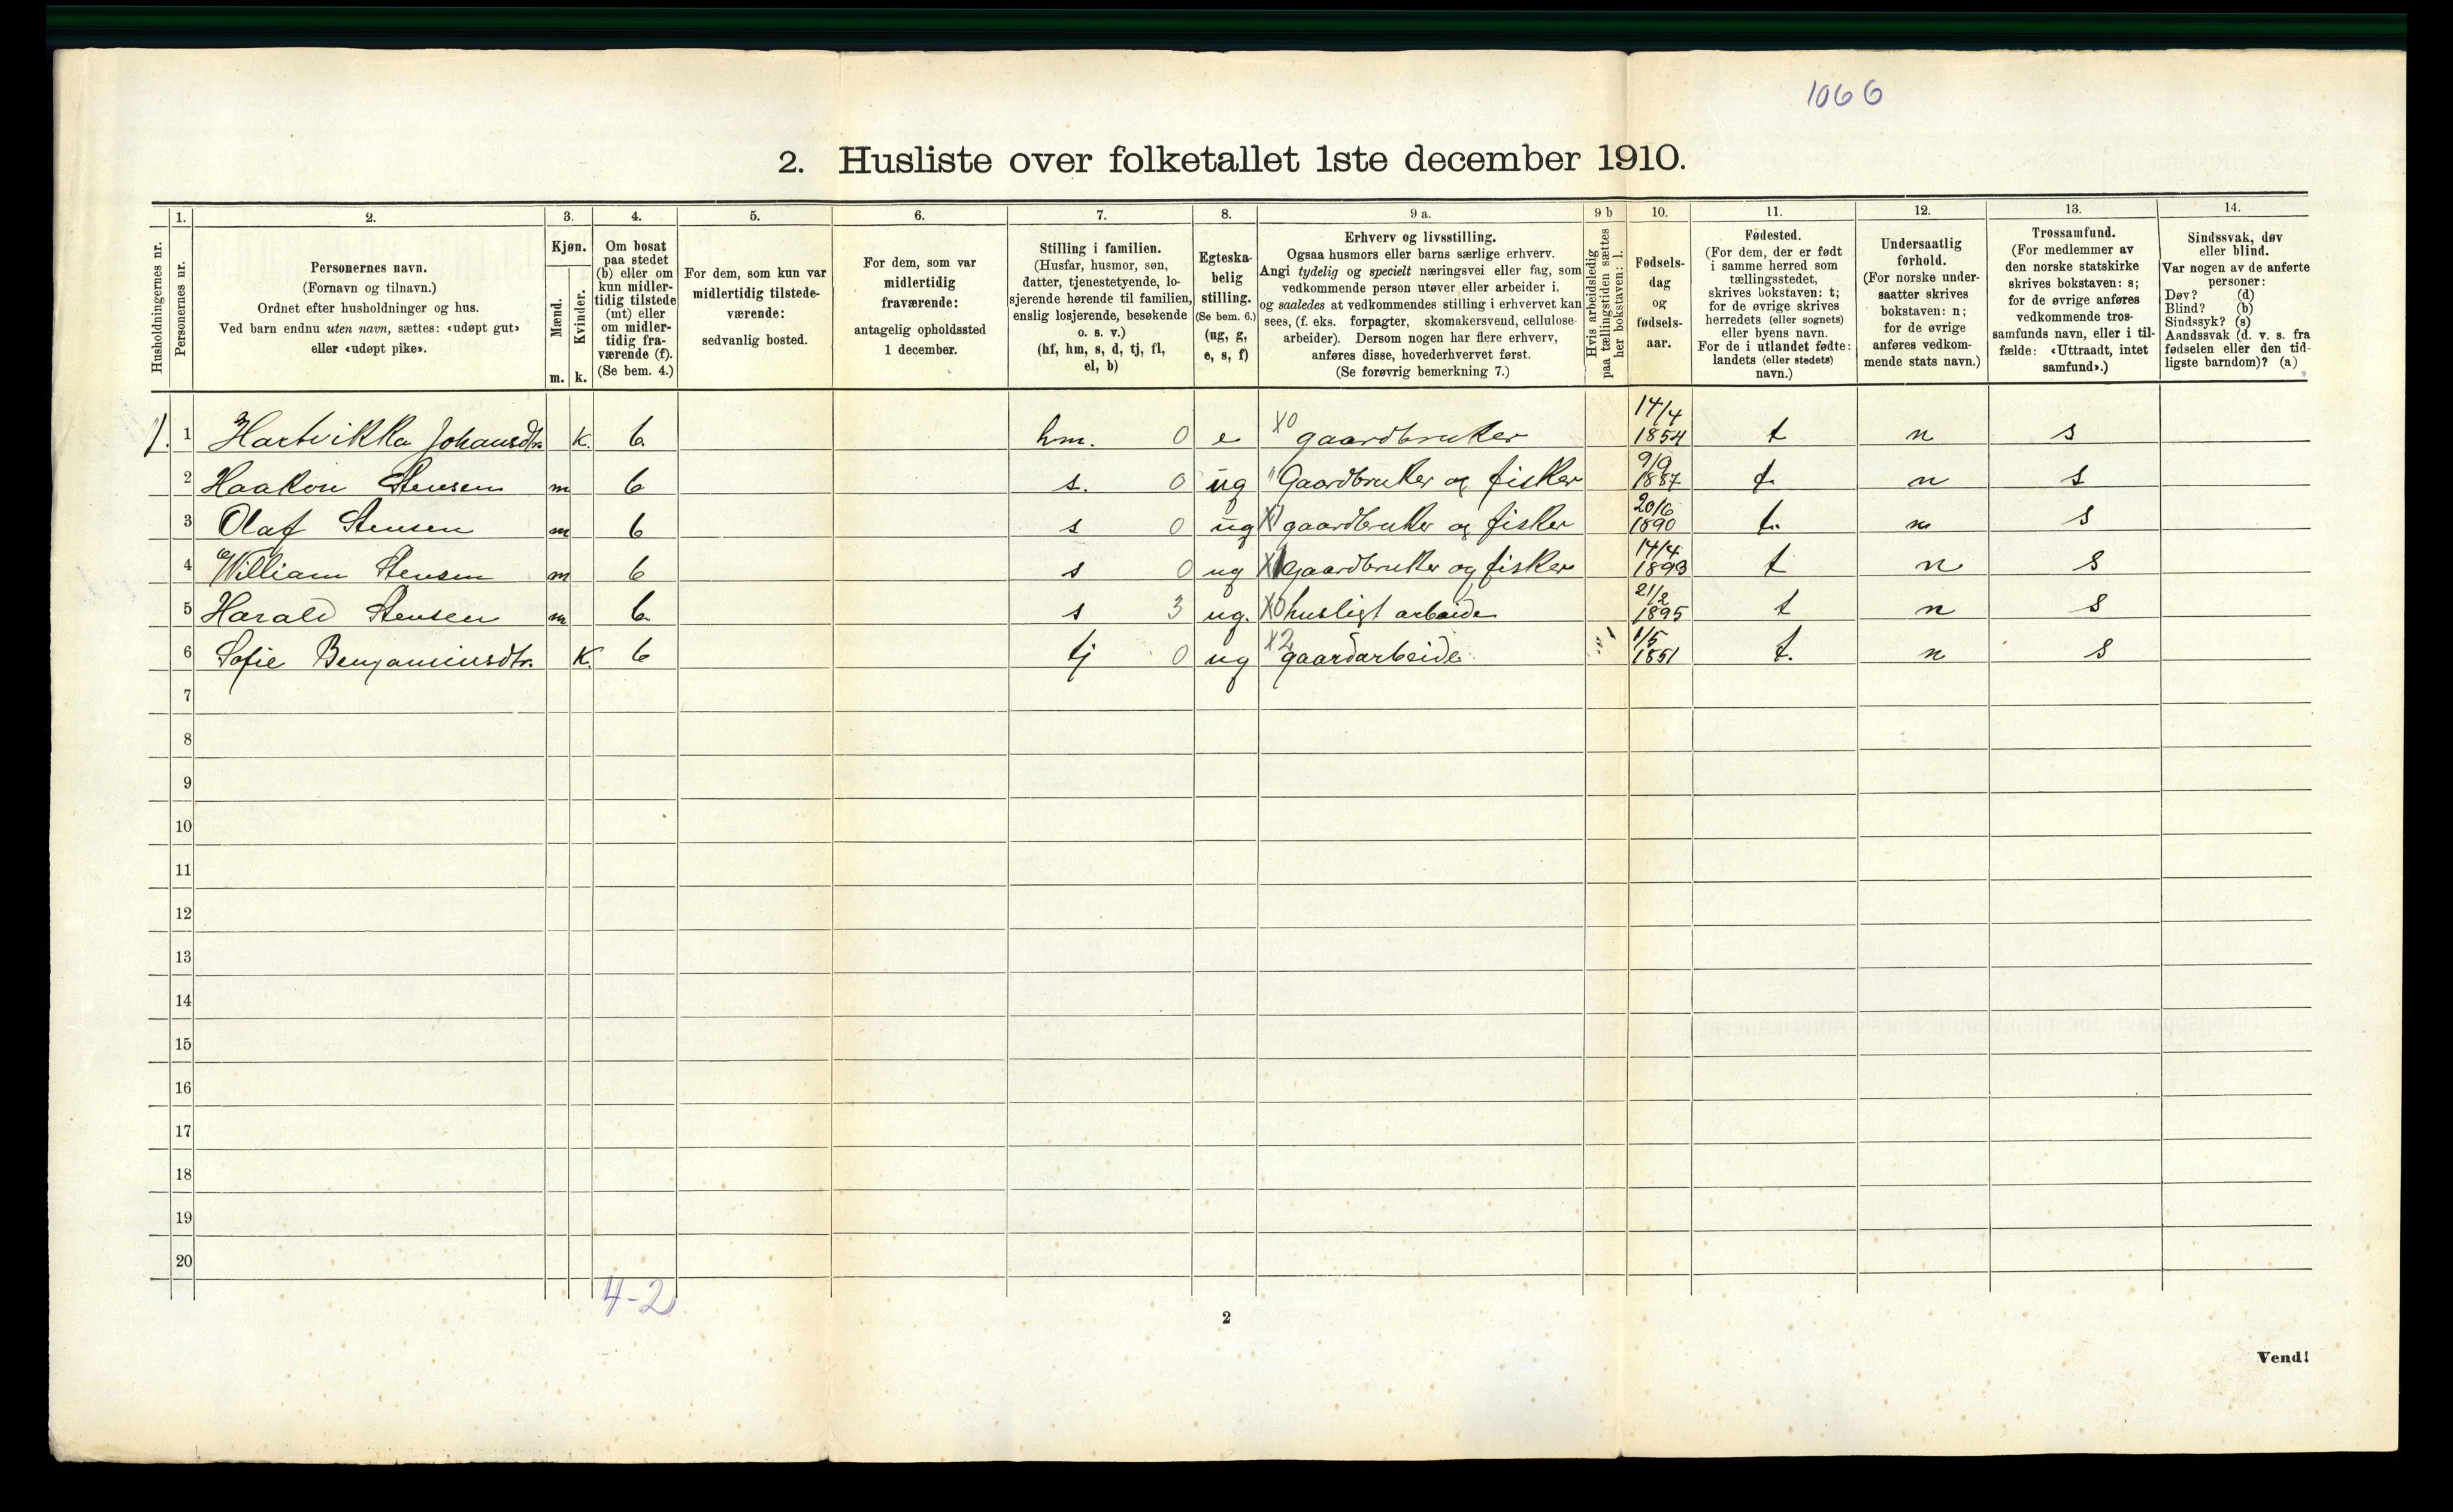 1066
2. Husliste over folketallet 1ste december 1910.
1. 2. 3. 4. 5. 6. 7. 8. 9 a. 9 b 10. 11. 12. 13. 14.
Husholdningernes nr.
Personernes nr.
Personernes navn.
(Fornavn og tilnavn.)
Ordnet efter husholdninger og hus.
Ved barn endnu uten navn, sættes: «udøpt gut»
eller «udøpt pike».
Kjøn.
Mænd.
Kvinder.
m. k.
Om bosat
paa stedet
(b) eller om
kun midler-
tidig tilstede
(mt) eller
om midler-
tidig fra-
værende (f).
(Se bem. 4.)
For dem, som kun var
midlertidig tilstede-
værende:
sedvanlig bosted.
For dem, som var
midlertidig
fraværende:
antagelig opholdssted
1 december.
Stilling i familien.
(Husfar, husmor, søn,
datter, tjenestetyende, lo-
sjerende hørende til familien,
enslig losjerende, besøkende
o. s. v.)
(hf, hm, s, d, tj, fl,
el, b)
Egteska-
belig
stilling.
(Se bem. 6.)
(ug, g,
e, s, f)
Erhverv og livsstilling.
Ogsaa husmors eller barns særlige erhverv.
Angi tydelig og specielt næringsvei eller fag, som
vedkommende person utøver eller arbeider i,
og saaledes at vedkommendes stilling i erhvervet kan
sees, (f. eks. forpagter, skomakersvend, cellulose-
arbeider). Dersom nogen har flere erhverv,
anføres disse, hovederhvervet først.
(Se forøvrig bemerkning 7.)
Hvis arbeidsledig
paa tællingstiden sættes
her bokstaven: l.
Fødsels-
dag
og
fødsels-
aar.
Fødested.
(For dem, der er født
i samme herred som
tællingsstedet,
skrives bokstaven: t;
for de øvrige skrives
herredets (eller sognets)
eller byens navn.
For de i utlandet fødte:
landets (eller stedets)
navn.)
Undersaatlig
forhold.
(For norske under-
saatter skrives
bokstaven: n;
for de øvrige
anføres vedkom-
mende stats navn.)
Trossamfund.
(For medlemmer av
den norske statskirke
skrives bokstaven: s;
for de øvrige anføres
vedkommende tros-
samfunds navn, eller i til-
fælde: «Uttraadt, intet
samfund».)
Sindssvak, døv
eller blind.
Var nogen av de anførte
personer:
Døv? (d)
Blind? (b)
Sindssyk? (s)
Aandssvak (d. v. s. fra
fødselen eller den tid-
ligste barndom)? (a)
1. 1 Hartvikka Johansdtr. k. b. hm. 0 e X0 gaardbruker 14/4 1854 t n s
2 Haakon Stensen m b s. 0 ug " Gaardbruker og fisker 9/9 1887 t. n s
3 Olaf Stensen m b s 0 ug X1 gaardbruker og fisker 20/6 1890 t. n s
4 William Stensen m b s 0 ug X1 gaardbruker og fisker 14/4 1893 t n s
5 Harald Stensen m b. s 3 ug. X0 husligt arbeide 21/2 1895 t n s
6 Sofie Benjaminsdtr. K. b tj 0 ug X2 gaardarbeide 1/5 1851 t. n s
7
8
9
10
11
12
13
14
15
16
17
18
19
20
4-2
2
Vend!